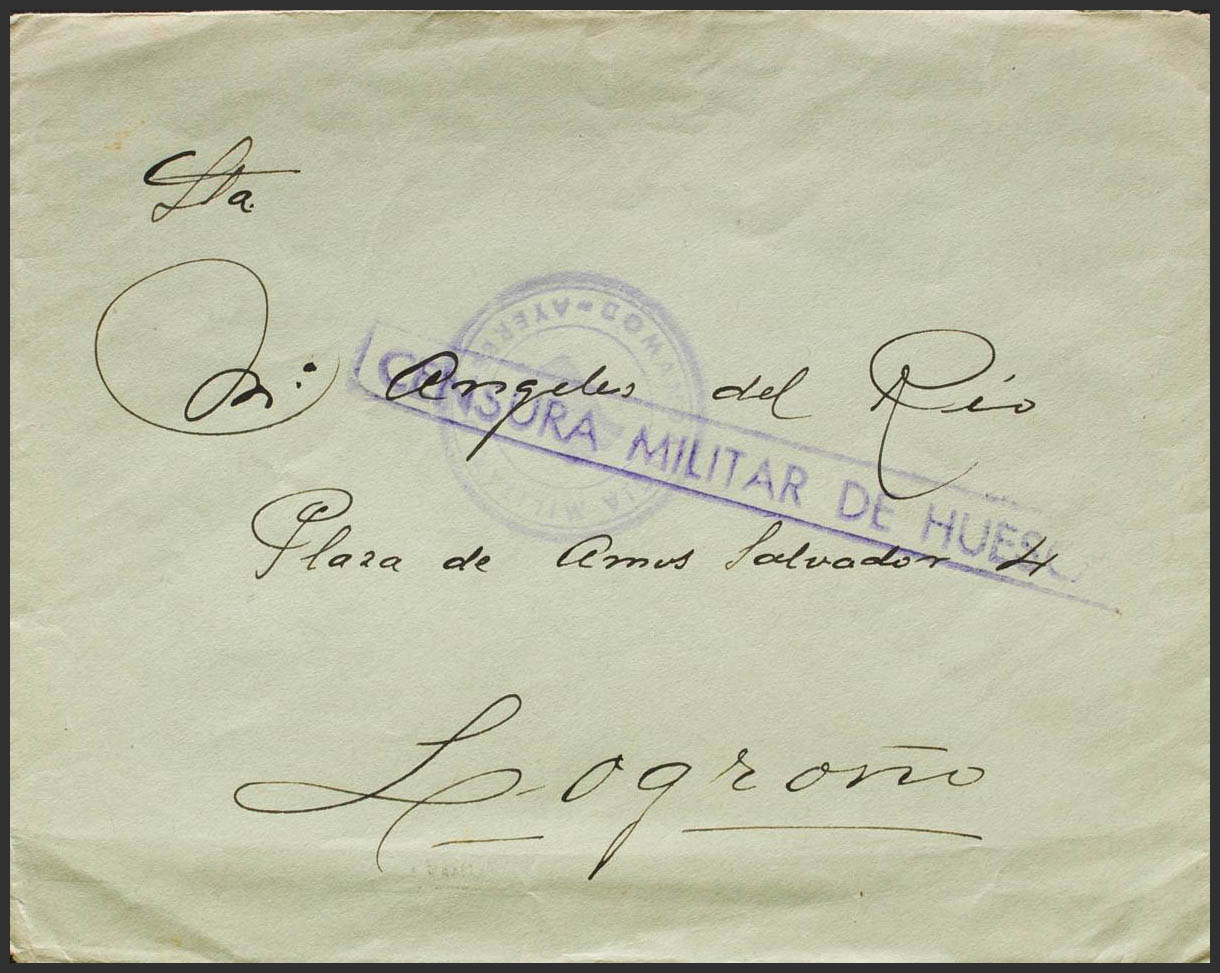 Sta.
Mª Angeles del Río
Plaza de Amos Salvador 4
Logroño
CENSURA MILITAR DE HUESCA
AYERBE